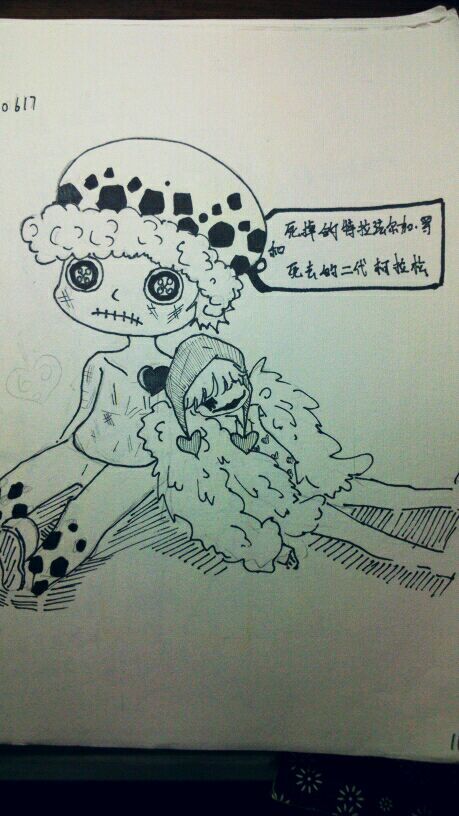 0617
死掉的特拉法尔加·罗
和
死去的二代柯拉松